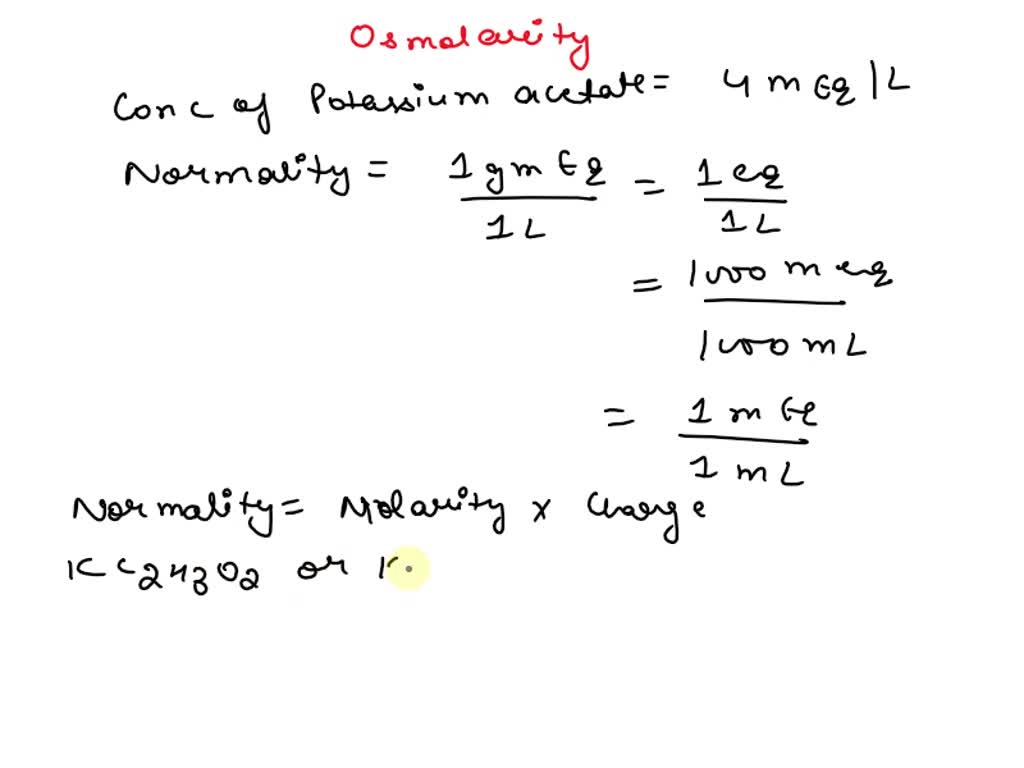 Osmolarity
Conc of Potassium acetate = 4 mEq/L
Normality = 1 gm Eq / 1 L = 1 eq / 1 L
= 1000 meq / 1000 mL
= 1 mEq / 1 mL
Normality = Molarity x Charge
KC2H3O2 or K